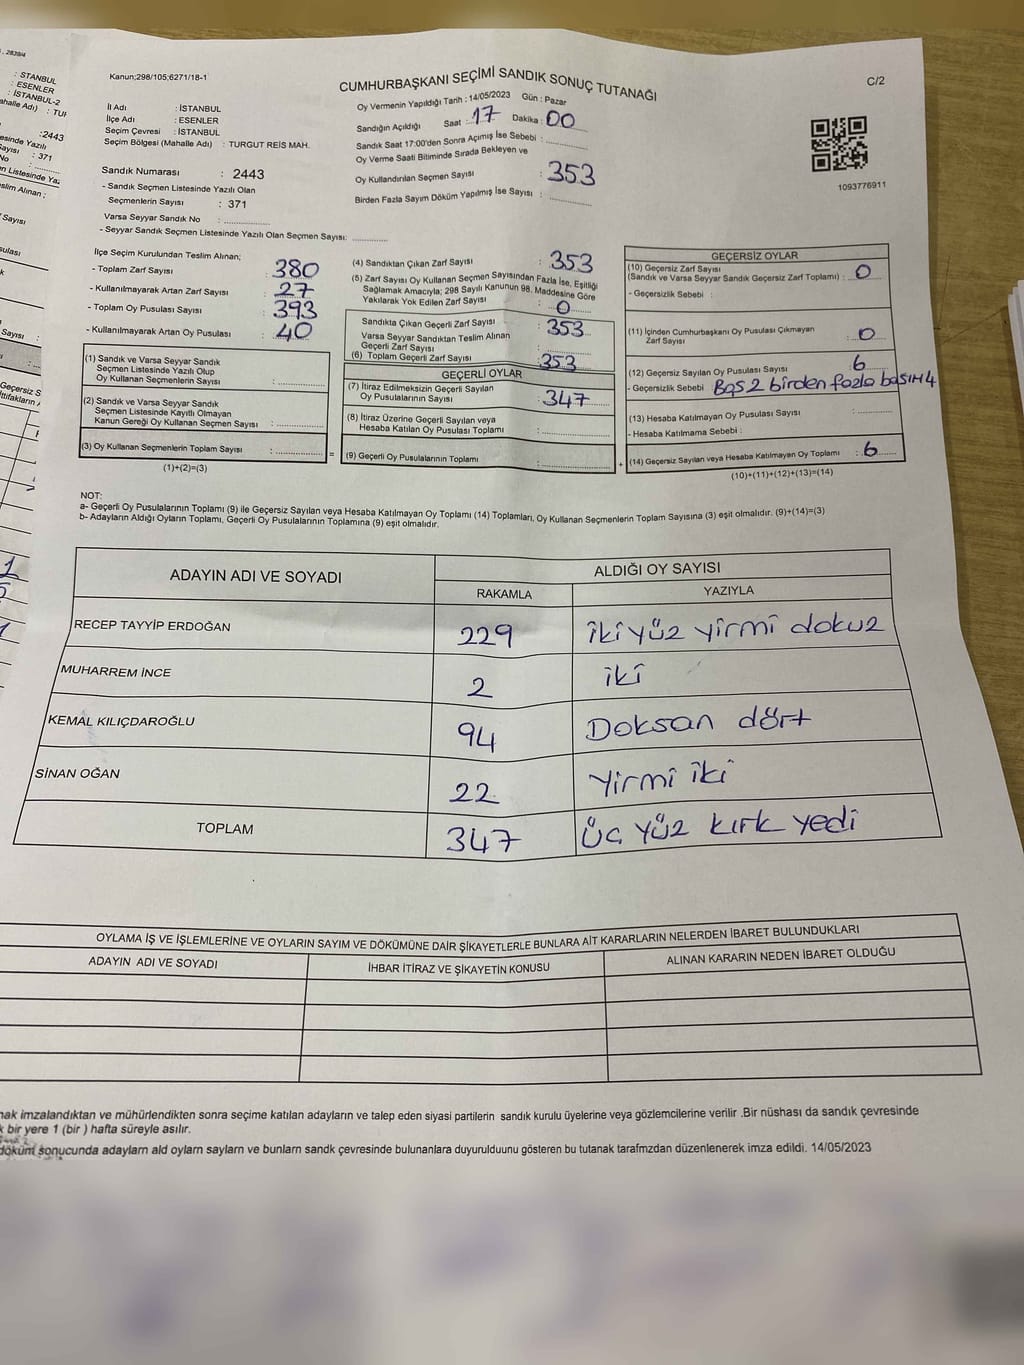 . 2839/4
: STANBUL
: ESENLER
: İSTANBUL-2
:2443
: 371
Kanun;298/105;6271/18-1
CUMHURBAŞKANI SEÇİMİ SANDIK SONUÇ TUTANAĞI
C/2
İl Adı : İSTANBUL
İlçe Adı : ESENLER
Seçim Çevresi : İSTANBUL
Seçim Bölgesi (Mahalle Adı) : TURGUT REİS MAH.
Sandık Numarası : 2443
- Sandık Seçmen Listesinde Yazılı Olan
Seçmenlerin Sayısı : 371
Varsa Seyyar Sandık No :
- Seyyar Sandık Seçmen Listesinde Yazılı Olan Seçmen Sayısı:
Oy Vermenin Yapıldığı Tarih : 14/05/2023 Gün : Pazar
Sandığın Açıldığı Saat : 17 Dakika : 00
Sandık Saat 17:00'den Sonra Açımış İse Sebebi :
Oy Verme Saati Bitiminde Sırada Bekleyen ve
Oy Kullandırılan Seçmen Sayısı : 353
Birden Fazla Sayım Döküm Yapılmış İse Sayısı :
1093776911
İlçe Seçim Kurulundan Teslim Alınan;
- Toplam Zarf Sayısı : 380
- Kullanılmayarak Artan Zarf Sayısı : 27
- Toplam Oy Pusulası Sayısı : 393
- Kullanılmayarak Artan Oy Pusulası : 40
(1) Sandık ve Varsa Seyyar Sandık
Seçmen Listesinde Yazılı Olup
Oy Kullanan Seçmenlerin Sayısı :
(2) Sandık ve Varsa Seyyar Sandık
Seçmen Listesinde Kayıtlı Olmayan
Kanun Gereği Oy Kullanan Seçmen Sayısı :
(3) Oy Kullanan Seçmenlerin Toplam Sayısı : =
(1)+(2)=(3)
(4) Sandıktan Çıkan Zarf Sayısı : 353
(5) Zarf Sayısı Oy Kullanan Seçmen Sayısından Fazla İse, Eşitliği
Sağlamak Amacıyla; 298 Sayılı Kanunun 98. Maddesine Göre
Yakılarak Yok Edilen Zarf Sayısı : 0
Sandıkta Çıkan Geçerli Zarf Sayısı : 353
Varsa Seyyar Sandıktan Teslim Alınan
Geçerli Zarf Sayısı :
(6) Toplam Geçerli Zarf Sayısı : 353
GEÇERLİ OYLAR
(7) İtiraz Edilmeksizin Geçerli Sayılan
Oy Pusulalarının Sayısı : 347
(8) İtiraz Üzerine Geçerli Sayılan veya
Hesaba Katılan Oy Pusulası Toplamı :
(9) Geçerli Oy Pusulalarının Toplamı : +
GEÇERSİZ OYLAR
(10) Geçersiz Zarf Sayısı
(Sandık ve Varsa Seyyar Sandık Geçersiz Zarf Toplamı) : 0
- Geçersizlik Sebebi :
(11) İçinden Cumhurbaşkanı Oy Pusulası Çıkmayan
Zarf Sayısı : 0
(12) Geçersiz Sayılan Oy Pusulası Sayısı : 6
- Geçersizlik Sebebi Boş 2 birden fazla basım 4
(13) Hesaba Katılmayan Oy Pusulası Sayısı :
- Hesaba Katılmama Sebebi :
(14) Geçersiz Sayılan veya Hesaba Katılmayan Oy Toplamı : 6
(10)+(11)+(12)+(13)=(14)
NOT:
a- Geçerli Oy Pusulalarının Toplamı (9) ile Geçersiz Sayılan veya Hesaba Katılmayan Oy Toplamı (14) Toplamları, Oy Kullanan Seçmenlerin Toplam Sayısına (3) eşit olmalıdır. (9)+(14)=(3)
b- Adayların Aldığı Oyların Toplamı, Geçerli Oy Pusulalarının Toplamına (9) eşit olmalıdır.
ADAYIN ADI VE SOYADI ALDIĞI OY SAYISI
RAKAMLA YAZIYLA
RECEP TAYYİP ERDOĞAN 229 iki yüz yirmi dokuz
MUHARREM İNCE 2 iki
KEMAL KILIÇDAROĞLU 94 Doksan dört
SİNAN OĞAN 22 Yirmi iki
TOPLAM 347 Üç yüz kırk yedi
OYLAMA İŞ VE İŞLEMLERİNE VE OYLARIN SAYIM VE DÖKÜMÜNE DAİR ŞİKAYETLERLE BUNLARA AİT KARARLARIN NELERDEN İBARET BULUNDUKLARI
ADAYIN ADI VE SOYADI İHBAR İTİRAZ VE ŞİKAYETİN KONUSU ALINAN KARARIN NEDEN İBARET OLDUĞU
nak imzalandıktan ve mühürlendikten sonra seçime katılan adayların ve talep eden siyasi partilerin sandık kurulu üyelerine veya gözlemcilerine verilir .Bir nüshası da sandık çevresinde
k bir yere 1 (bir ) hafta süreyle asılır.
döküm sonucunda adaylarn ald oylarn saylarn ve bunlarn sandk çevresinde bulunanlara duyurulduunu gösteren bu tutanak tarafmzdan düzenlenerek imza edildi. 14/05/2023